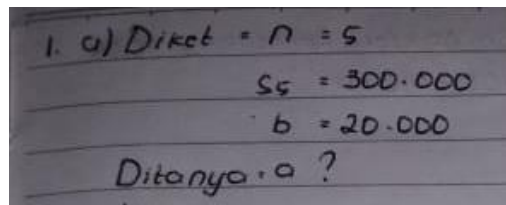 1. a) Diket = n = 5
S5 = 300.000
b = 20.000
Ditanya = a ?